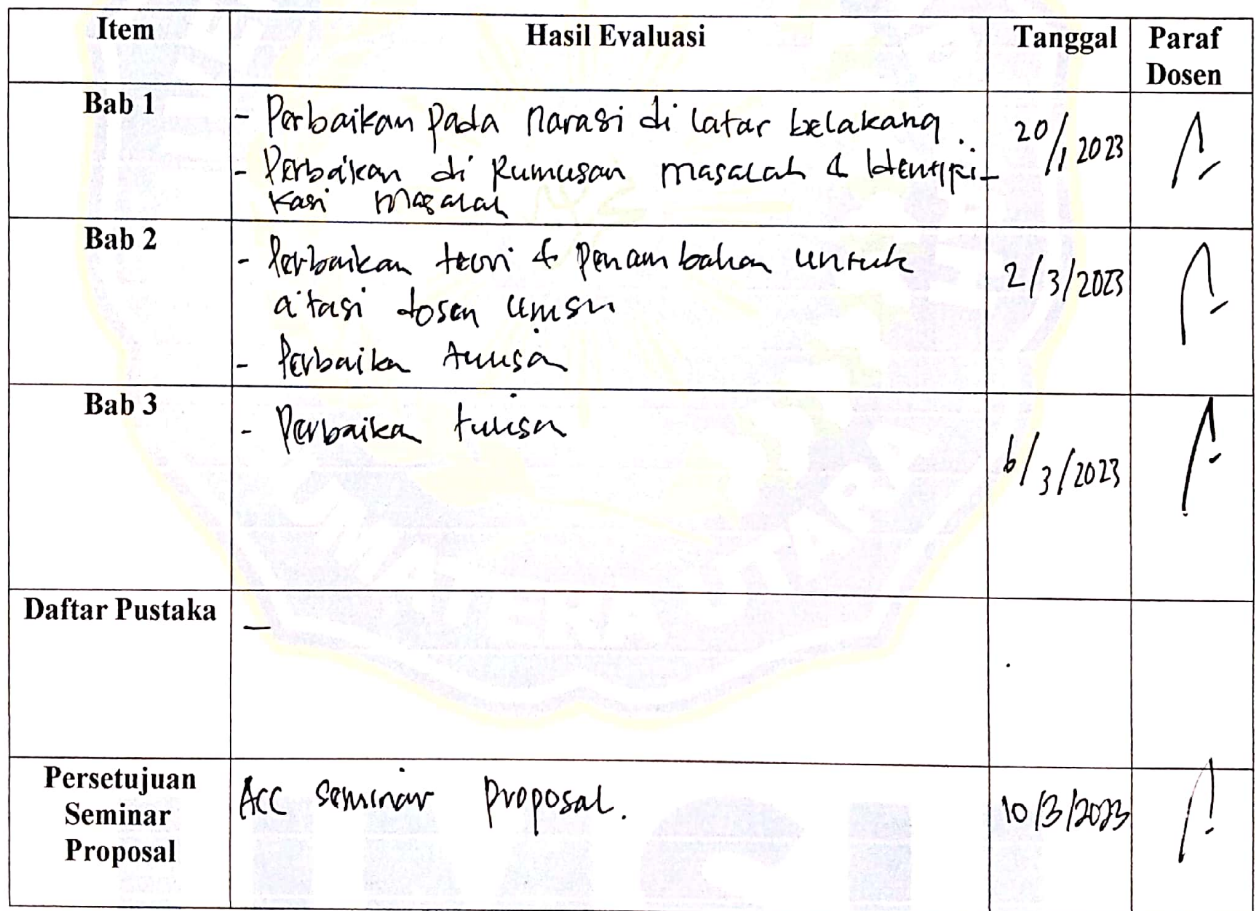 Item Hasil Evaluasi Tanggal Paraf
Dosen
Bab 1
- Perbaikan pada narasi di latar belakang.
- Perbaikan di Rumusan masalah & Identifi-
kasi masalah
20/1 2023
Bab 2
- Perbaikan teori & Penambahan untuk
sitasi dosen umsu
- Perbaika tulisa
2/3/2023
Bab 3
- Perbaika tulisa
6/3/2023
Daftar Pustaka
—
Persetujuan
Seminar
Proposal
Acc seminar proposal.
10/3/2023
SUMATERA UTARA
UMSU